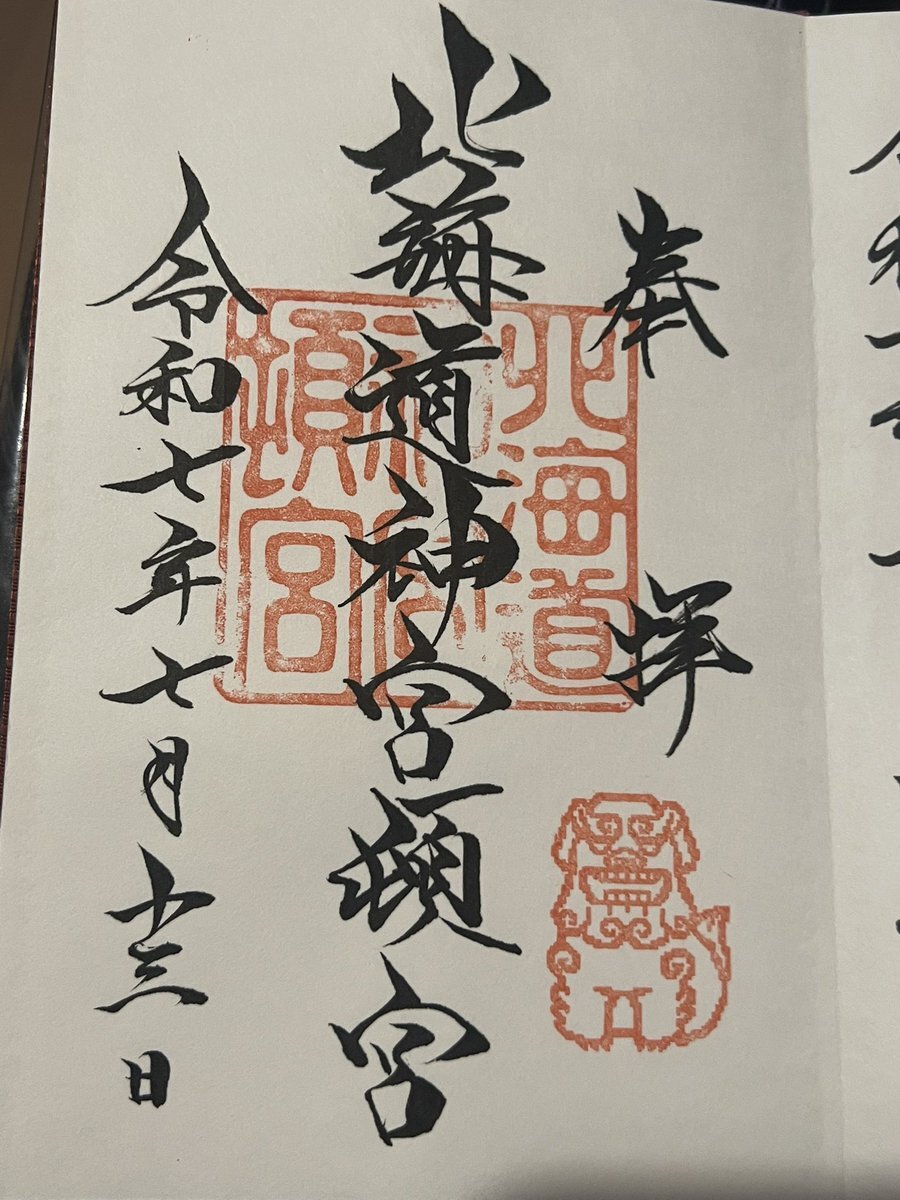 奉拝
北海道神宮頓宮
令和七年七月十三日
北海道
神宮
頓宮